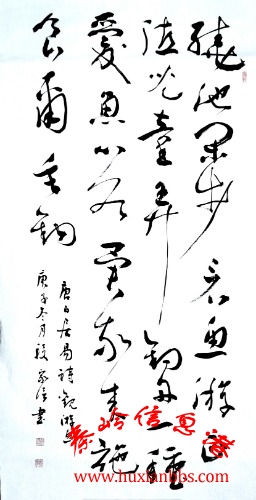 繞池闲步看魚游正
值兒童弄釣舟一種
愛魚心各異我来施
食爾垂鉤
唐白居易詩觀游魚
庚子冬月段家信書
秦岭信息
www.huxianbbs.com